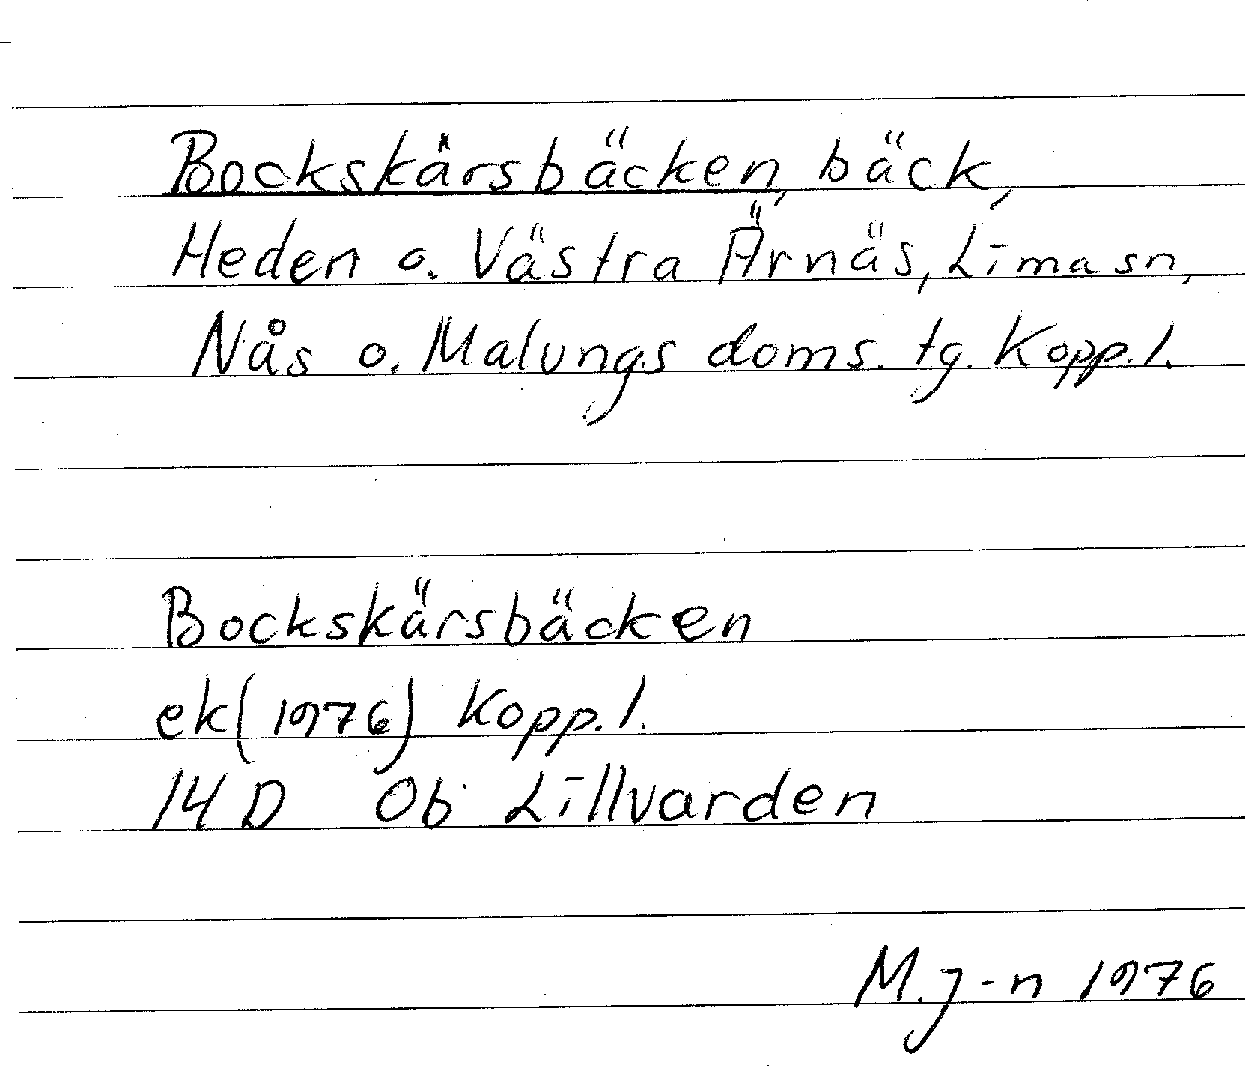 Bockskärsbäcken, bäck,
Heden o. Västra Ärnäs, Lima sn,
Nås o. Malungs doms. tg. Kopp. l.
Bockskärsbäcken
ek (1976) Kopp. l.
14 D Ob Lillvarden
M. J-n 1976